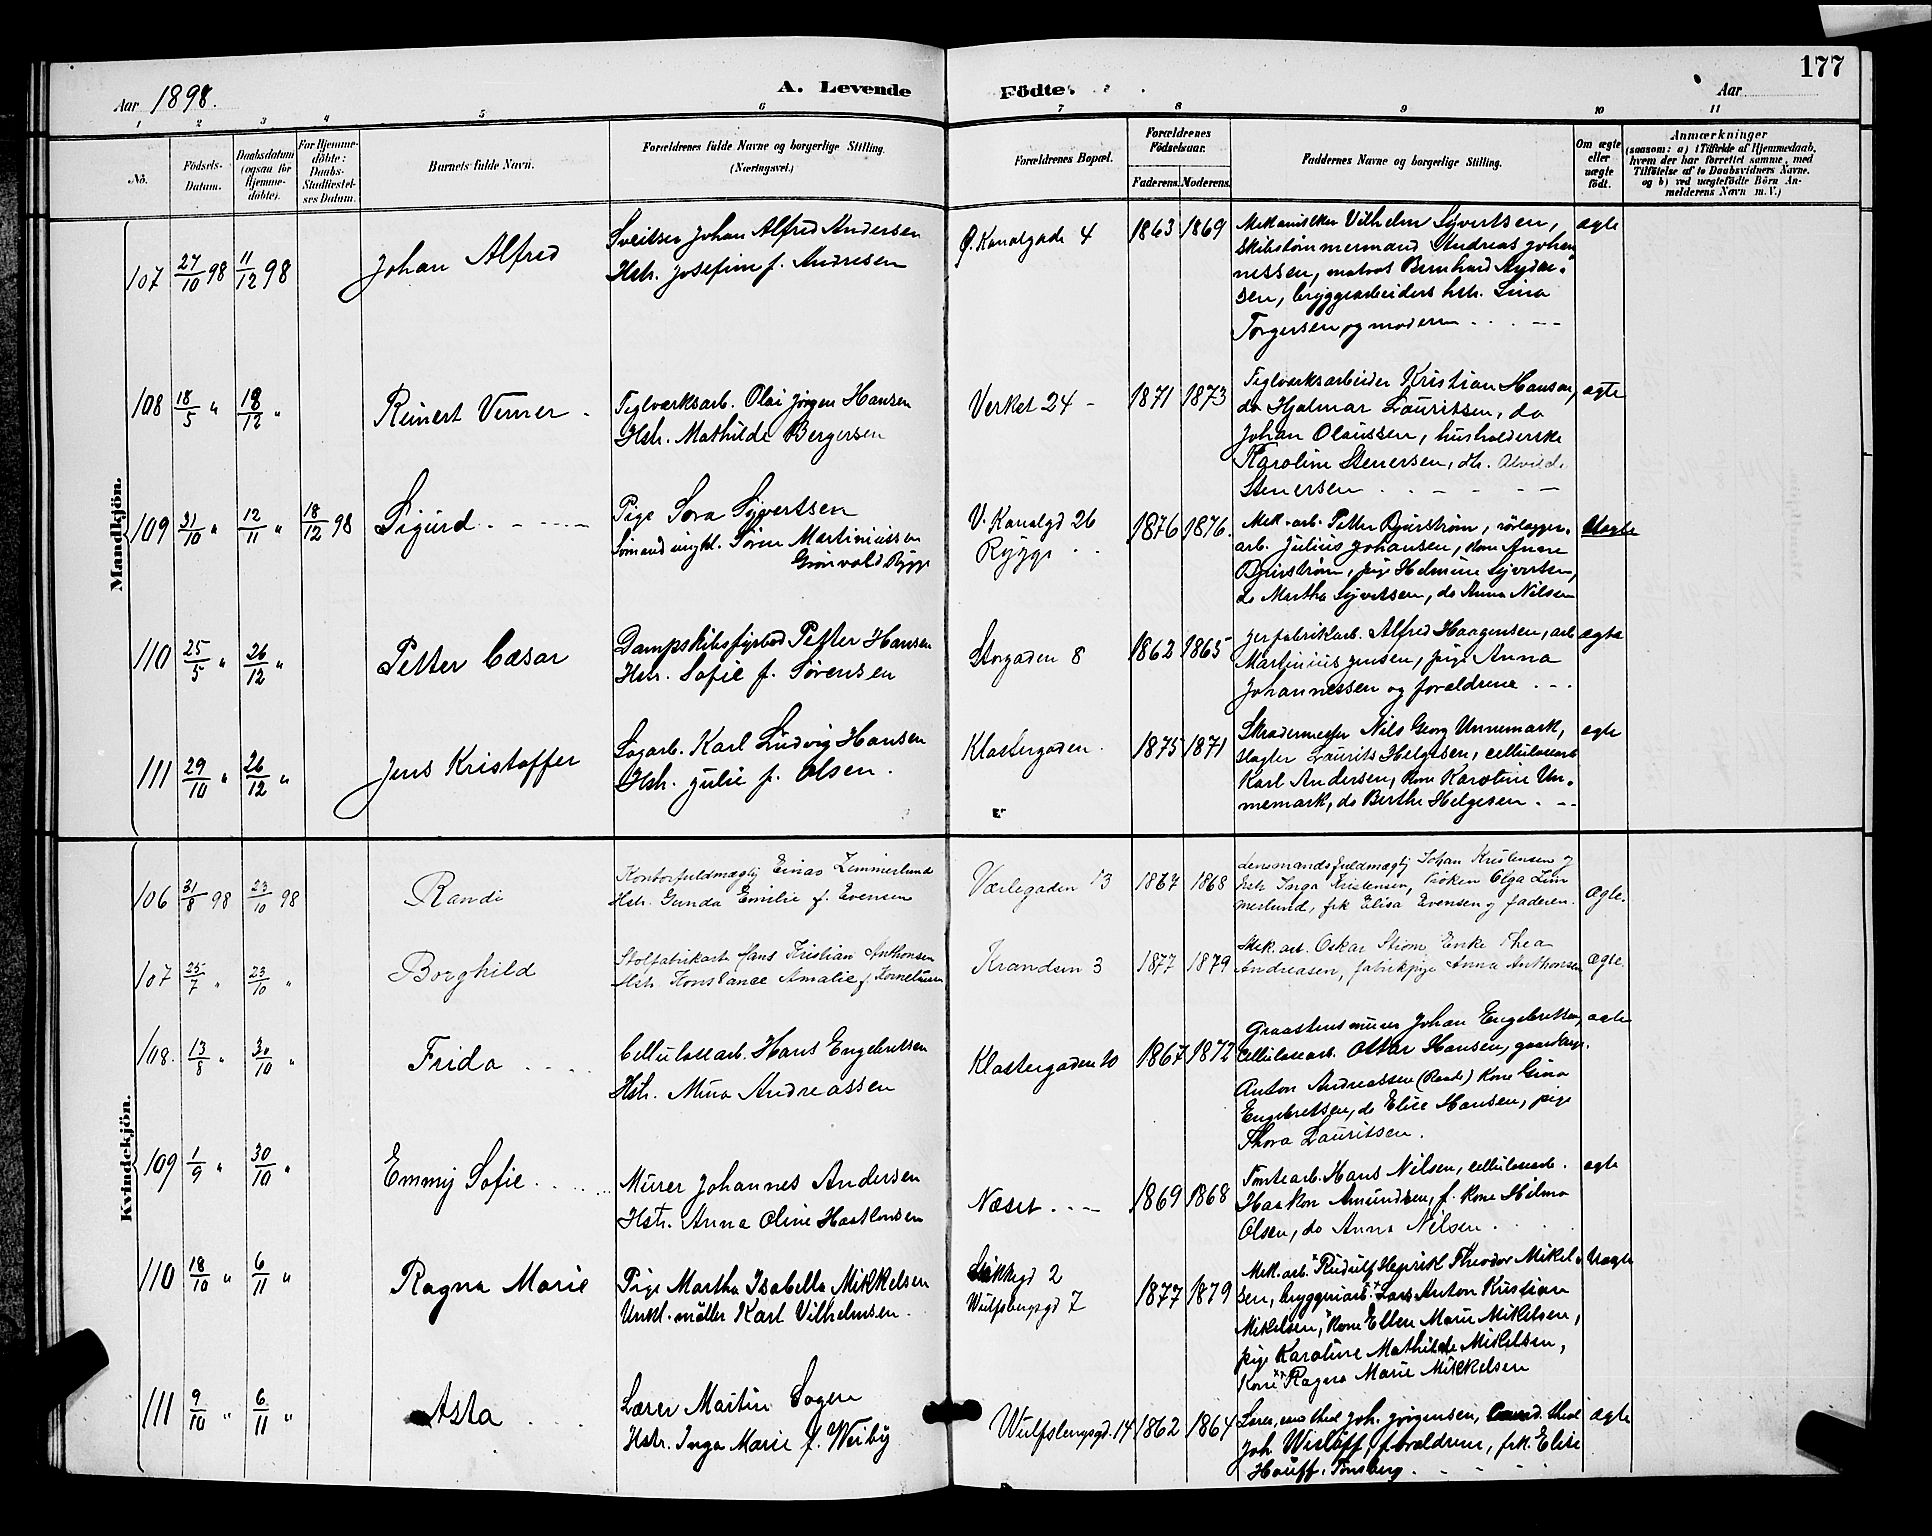 177
Aar 1898.
A. Levende
Födte.
Aar
1 2 3 4 5 6 7 8 9 10 11
No.
Födsels-Datum.
Daabsdatum (ogsaa for Hjemme-döbte).
For Hjemme-döbte: Daabs-Stadfæstel-ses Datum.
Barnets fulde Navn.
Forældrenes fulde Navne og borgerlige Stilling.
(Næringsvei.)
Forældrenes Bopæl.
Forældrenes Födselsaar.
Faderens. Moderens.
Faddernes Navne og borgerlige Stilling.
Om ægte eller uægte født.
Anmærkninger
(saasom: a) i Tilfælde af Hjemmedaab,
hvem der har forrettet samme, med
Tilföielse af to Daabsvidners Navne.
og b) ved uægtefödte Börn An-
melderens Navn m. V.)
Mandkjön.
107 27/10 98 11/12 98 Johan Alfred
Sveitser Johan Alfred Andersen
Hstr. Josefine f. Andresen
Ø. Kanalgade 4 1863 1869
Mekaniker Vilhelm Syvertsen,
skibstømmermand Andreas Johan
nessen, matros Bernhard Ander-
sen, bryggearbeiders hstr. Lina
Torgersen og moderen
ægte
108 18/5 " 18/12 " Reinert Verner
Teglværksarb. Olai Jørgen Hansen
Hstr. Mathilde Bergersen
Verket 24 1871 1873
Teglværksarbeider Kristian Hansen,
do Hjalmar Lauritsen, do
Johan Olaussen, husholderske
Karoline Stenersen, do. Alvild
Stenersen
ægte
109 31/10 " 12/11 " 18/12 98 Sigurd
Pige Sora Syvertsen
Sømand ungkl. Søren Martiniussen
Grønvold Rygge
V. Kanalgd 26
Rygge
1876 1876.
Mek. arb. Petter Bjurstrøm, rørlægger-
arb. Julius Johansen, kone Anne
Bjurstrøm, pige Helmine Syvertsen,
do Martha Syvertsen, do Anna Nilsen
Uægte
110 25/5 " 26/12 " Petter Cæsar
Dampskibsfyrbød Petter Hansen
Hstr. Sofie f. Sørensen
Storgaden 8 1862 1865
Jerfabrikarb. Alfred Haagensen, arb
Martinius Jensen, pige Anna
Johannessen og forældrene
ægte
111 29/10 " 26/12 " Jens Kristoffer
Sagarb. Karl Ludvig Hansen
Hstr. Julie f. Olsen.
Klostergaden. 1875 1871
Skrædermester Nils Georg Unnemark,
slagter Laurits Helgesen, cellulosearb
Karl Andersen, kone Karoline Un-
nemark, do Berthe Helgesen
ægte
Kvindekjön.
106 31/8 98 23/10 98 Randi
Kontorfuldmægtig Einar Zimmerlund
Hstr. Gunda Emilie f. Evensen
Værlegaden 13 1867 1868
Lensmandsfuldmægtig Johan Kristensen og
hstr Inga Kristensen, frøken Olga Zim
merlund, frk Elisa Evensen og faderen.
Ægte.
107 25/7 " 23/10 " Borghild
Stolfabrikarb Hans Kristian Anthonsen
Hstr. Konstance Amalie f. Korneliusen
Krandsen 3 1877 1879
Mek. arb. Oskar Strøm Enke Thea
Andreasen, fabrikpige Anna Anthonsen
ægte.
108. 13/8 " 30/10 " Frida
Cellulosearb. Hans Engebretsen
Hstr. Mina Andreassen
Klostergaden 20 1867 1872
Graastensmurer Johan Engebretsen,
cellulosearb. Ottar Hansen, gaardbrgr.
Anton Andreassen (Raade) kone Gina
Engebretsen, do Elise Hansen, pige
Thora Lauritsen.
ægte
109 1/9 " 30/10 " Emmy Sofie
Murer Johannes Andersen
Hstr. Anna Oline Haakonsen
Næset 1869 1868
Tomtearb. Hans Nilsen, cellulosearb.
Haakon Amundsen, f. kone Hilma
Olsen, do Anna Nilsen.
ægte
110 18/10 " 6/11 " Ragna Marie
Pige Martha Isabella Mikkelsen
Unkl. møller Karl Vilhelmsen.
Stikkegd 2
Wulfsbergsgd 7
1877 1879
Mek. arb. Rudulf Henrik Theodor Mikel-
sen, bryggeriarb. Lars Anton Kristian
Mikelsen, kone Ellen Marie Mikelsen,
pige Karoline Mathilde Mikelsen,
Kone Ragna Marie Mikkelsen
Uægte
111 9/10 " 6/11 " Asta
Lærer Martin Sogen
Hstr. Inga Marie f. Weiby
Wulfsbergsgd. 14 1862 1864
Lærer, cand theol Joh. Jørgensen, cand. theol
Joh Wisløff, forældrene, frk. Elise
Hauff, Tønsberg
ægte